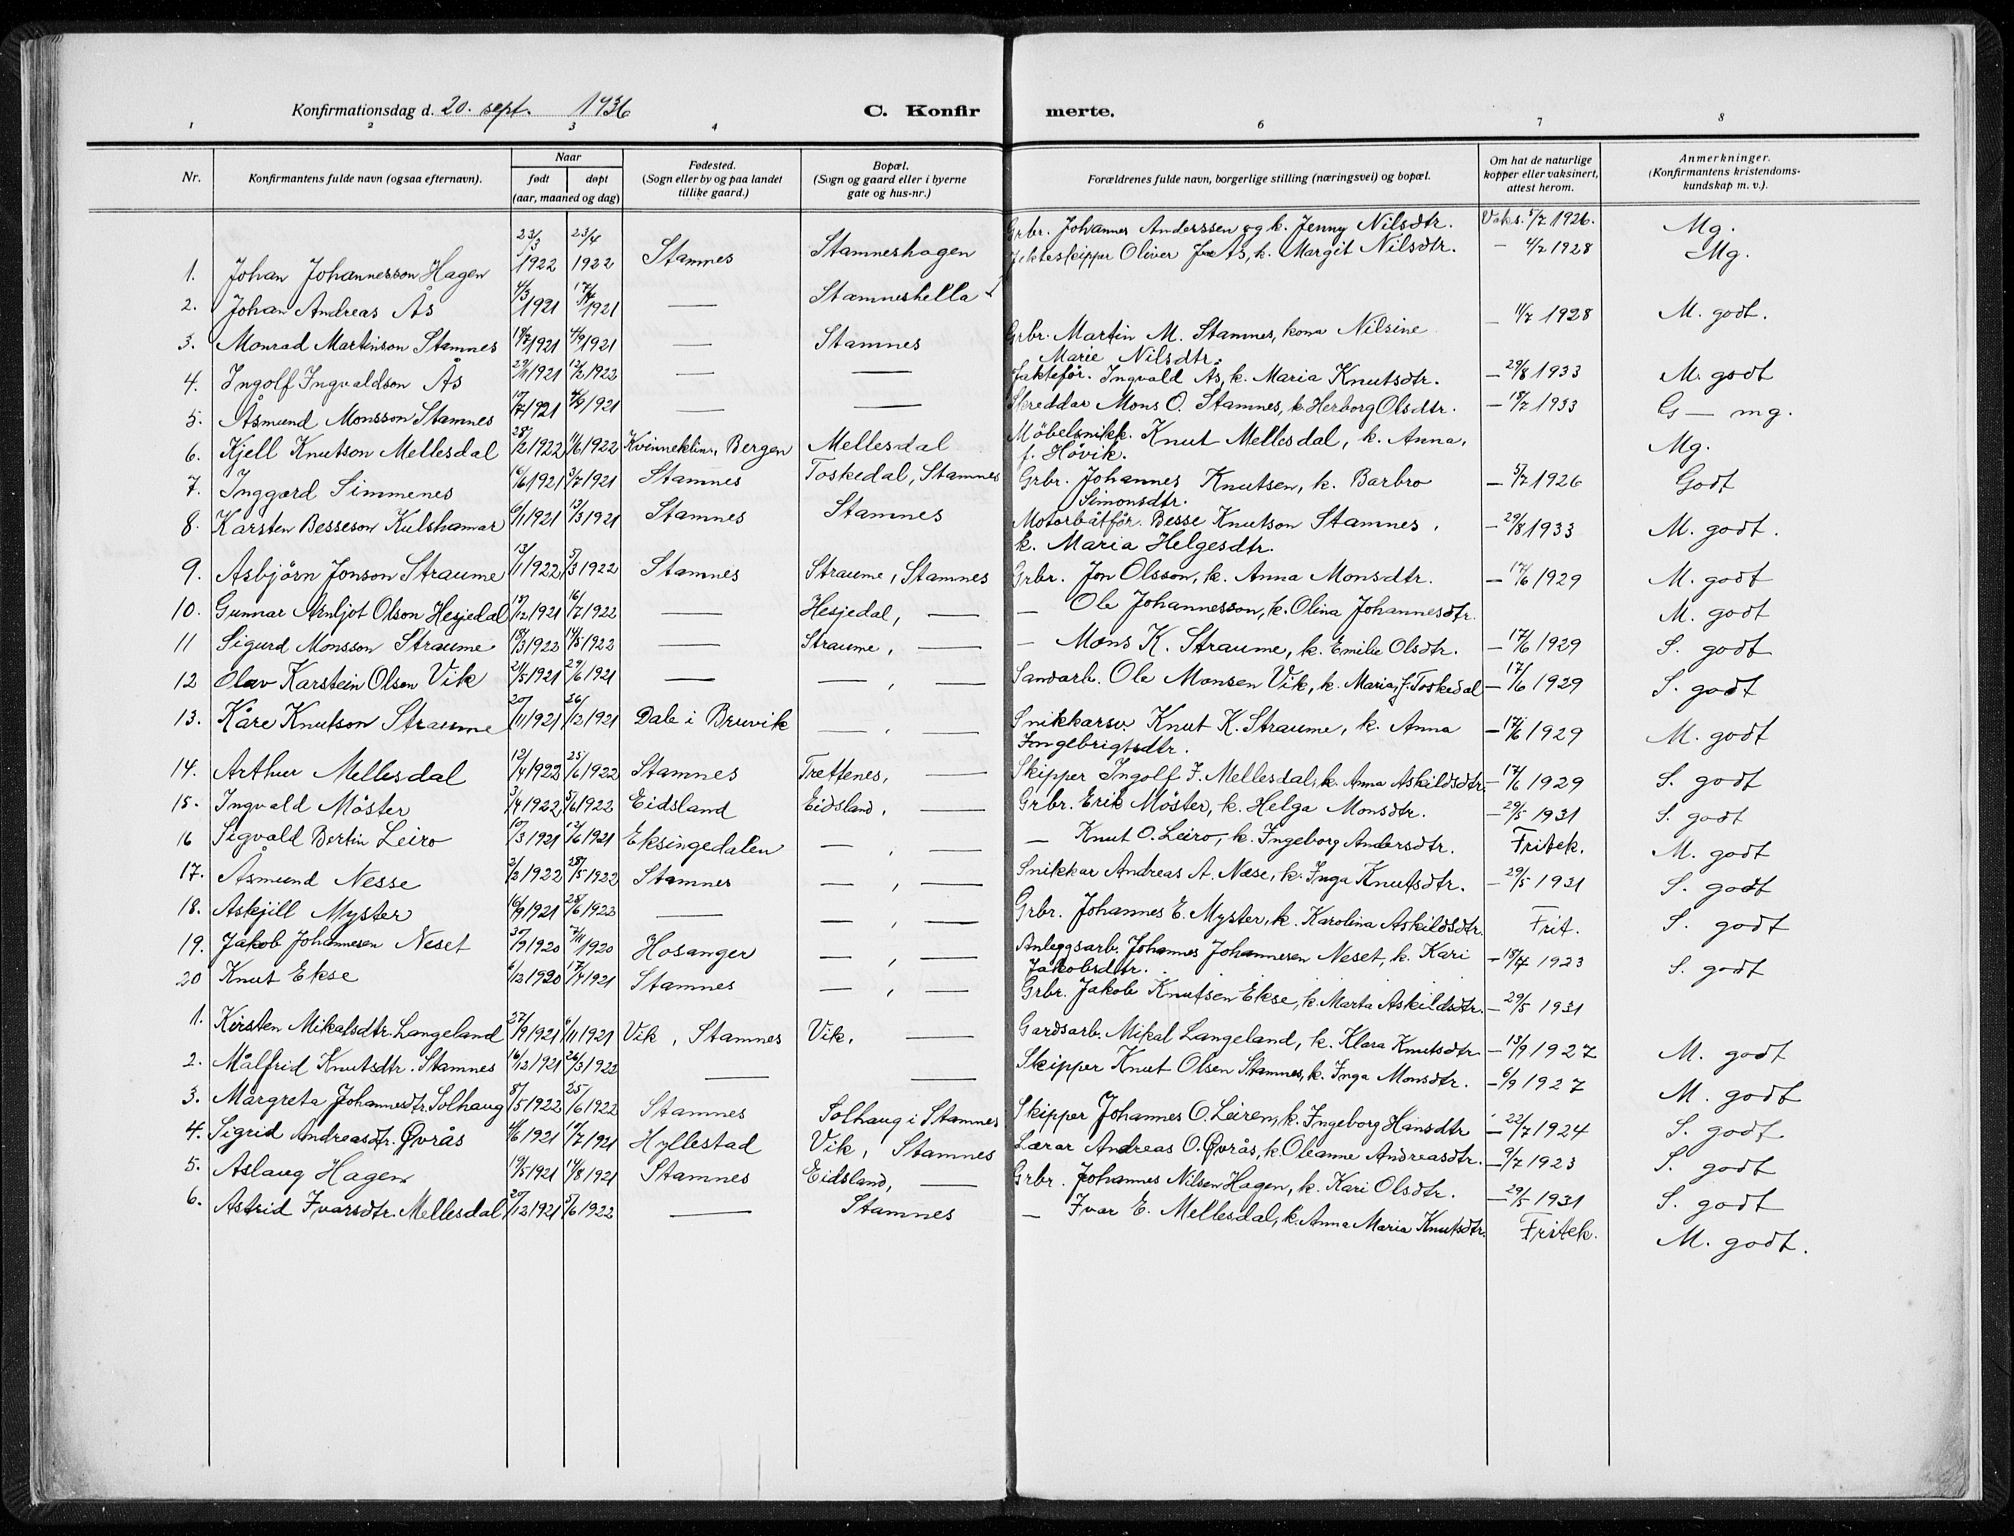 Konfirmationsdag d. 20. sept. 1936
C. Konfirmerte.
1 2 3 4 5 6 7 8
Nr. Konfirmantens fulde navn (ogsaa efternavn). Naar født døpt (aar, maaned og dag) Fødested. (Sogn eller by og paa landet tillike gaard.) Bopæl. (Sogn og gaard eller i byerne gate og hus-nr.) Forældrenes fulde navn, borgerlige stilling (næringsvei) og bopæl. Om hat de naturlige kopper eller vaksinert, attest herom. Anmerkninger. (Konfirmantens kristendomskundskap m. v.).
1. Johan Johannesson Hagen 23/3 1922 23/4 1922 Stamnes Stamneshagen Grbr. Johannes Anderssen og k. Jenny Nilsdtr. Vaks. 5/7 1926. Mg.
2. Johan Andreas Ås 4/3 1921 17/4 1921 — Stamneshella Jekteskipper Oliver J. Ås, k. Margit Nilsdtr. — 4/7 1928 Mg.
3. Monrad Martinson Stamnes 18/7 1921 4/9 1921 — Stamnes Grbr. Martin M. Stamnes, kona Nilsine Marie Nilsdtr. — 4/7 1928 M. godt.
4. Ingolf Ingvaldson Ås 29/11 1921 12/2 1922 — — Jaktefør. Ingvald Ås, k. Maria Knutsdtr. — 29/8 1933 M. godt
5. Åsmund Monsson Stamnes 17/7 1921 4/9 1921 — — Skreddar Mons O. Stamnes, k. Herborg Olsdtr. — 18/7 1933 G — mg.
6. Kjell Knutson Mellesdal 28/2 1922 11/6 1922 Kvinneklin., Bergen Mellesdal Møbelsnikk. Knut Mellesdal, k. Anna, f. Høvik. Mg.
7. Inggard Simmenes 16/6 1921 3/7 1921 Stamnes Toskedal, Stamnes Grbr. Johannes Knutsen, k. Barbro Simonsdtr. — 5/7 1926 Godt
8. Karsten Besseson Kulshamar 6/1 1921 13/3 1921 Stamnes Stamnes Motorbåtfør. Besse Knutson Stamnes, k. Maria Helgesdtr. — 29/8 1933 M. godt.
9. Asbjørn Jonson Straume 13/1 1922 5/3 1922 Stamnes Straume, Stamnes Grbr. Jon Olsson, k. Anna Monsdtr. — 17/6 1929 M. godt
10. Gunnar Arnljot Olson Hesjedal 17/12 1921 16/7 1922 — Hesjedal, — — Ole Johannesson, k. Olina Johannesdtr. M. godt
11 Sigurd Monsson Straume 18/3 1922 14/5 1922 — Straume, — — Mons K. Straume, k. Emilie Olsdtr. — 17/6 1929 S. godt
12 Olav Karstein Olsen Vik 21/5 1921 29/6 1921 — — , — Sandarb. Ole Monsen Vik, k. Maria, f. Toskedal — 17/6 1929 S. godt
13. Kåre Knutson Straume 20/11 1921 26/12 1921 Dale i Bruvik — , — Snikkarsv. Knut K. Straume, k. Anna Ingebrigtsdtr. — 17/6 1929 M. godt
14. Arthur Mellesdal 12/4 1922 25/6 1922 Stamnes Trettenes, — Skipper Ingolf I. Mellesdal, k. Anna Askildsdtr. — 17/6 1929 S. godt
15. Ingvald Møster 3/4 1922 5/6 1922 Eidsland Eidsland, — Grbr. Erik Møster, k. Helga Monsdtr. — 29/5 1931 S. godt
16 Sigvald Bertin Leiro 10/3 1921 12/6 1921 Eksingedalen — , — — Knut O. Leiro, k. Ingeborg Andersdtr. Fritek. M. godt
17. Åsmund Nesse 2/2 1922 28/5 1922 Stamnes — , — Snikkar Andreas A. Næse, k. Inga Knutsdtr. — 29/5 1931 S. godt
18. Askjill Myster 16/9 1921 28/6 1922 — — , — Grbr. Johannes E. Myster, k. Karolina Askildsdtr. Frit. S. godt
19. Jakob Johannesen Neset 30/9 1920 7/11 1920 Hosanger — , — Anleggsarb. Johannes Johannesen Neset, k. Kari Jakobsdtr. — 18/4 1923 S. godt
20 Knut Ekse 6/12 1920 17/4 1921 Stamnes — , — Grbr. Jakob Knutsen Ekse, k. Marta Askildsdtr. — 29/5 1931
1. Kirsten Mikalsdtr. Langeland 27/9 1921 6/11 1921 Vik, Stamnes Vik, — Gardsarb. Mikal Langeland, k. Klara Knutsdtr. — 13/9 1927 M. godt
2. Målfrid Knutsdtr. Stamnes 16/12 1921 26/3 1922 — — Skipper Knut Olsen Stamnes, k. Inga Monsdtr. — 6/9 1927 M. godt
3. Margreta Johannesdtr. Solhaug 8/5 1922 25/6 1922 Stamnes Solhaug i Stamnes Skipper Johannes O. Leiren, k. Ingeborg Hansdtr — 22/7 1924 S. godt
4. Sigrid Andreasdtr. Øvrås 4/6 1921 17/7 1921 Hyllestad Vik, Stamnes Lærar Andreas O. Øvrås, k. Oleanne Andreasdtr. — 9/7 1923 S. godt
5. Aslaug Hagen 19/5 1921 14/8 1921 Stamnes Eidsland, — Grbr. Johannes Nilsen Hagen, k. Kari Olsdtr. — 29/5 1931 S. godt
6. Astrid Ivarsdtr. Mellesdal 20/12 1921 5/6 1922 — Stamnes — Ivar E. Mellesdal, k. Anna Maria Knutsdtr. Fritek. M. godt.